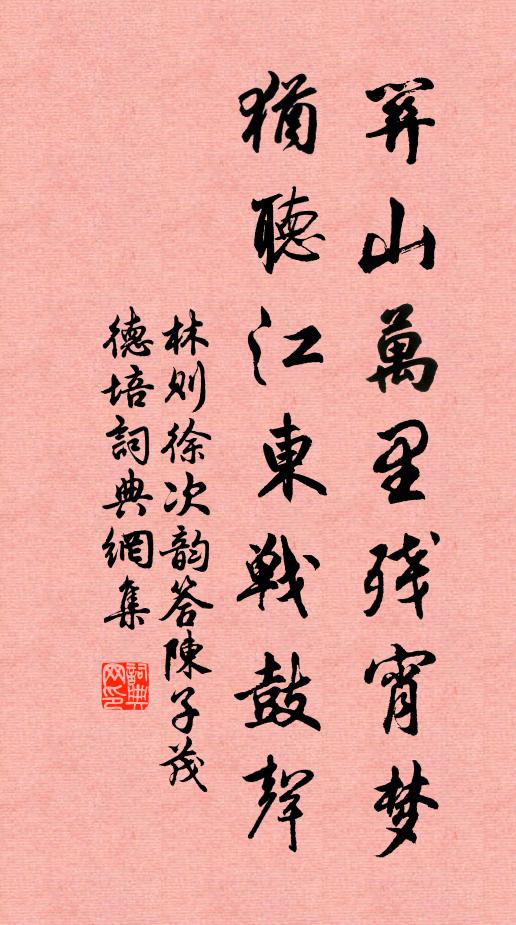 關山萬里残宵梦
猶聽江東戰鼓聲
林则徐次韵答陳子茂
德培詞典網集
詞典网印